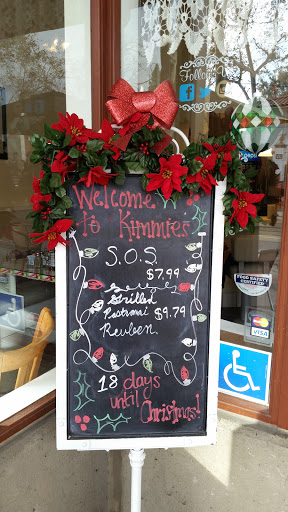 Follow Us
Welcome
to Kimmies
S.O.S.
$7.99
Grilled
Pastrami $9.79
Reuben
18 days
until
Christmas!
FOOD SAFETY
CERTIFIED
VISA